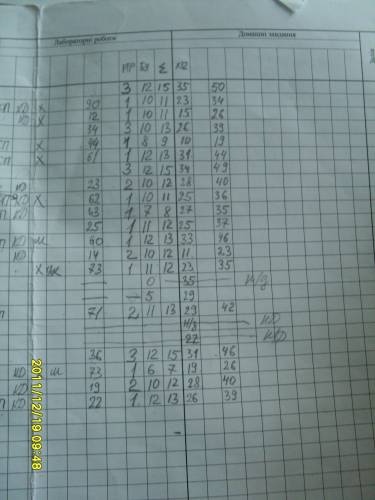 Лабораторні роботи Домашні завдання
ПР Σ
3 12 15 35 50
СП КО Х 90 1 10 11 23 34
КО Х 12 1 10 11 15 26
34 3 10 13 26 39
СП Х 44 1 8 9 10 19
СП Х 61 1 12 13 31 44
3 12 15 34 49
23 2 10 12 28 40
КО Х 62 1 10 11 25 36
КО 43 1 7 8 27 35
25 1 11 12 25 37
П КО 60 1 12 13 33 46
КО 14 2 10 12 11 23
Х 73 1 11 12 23 35
0 35 н/з
5 29
П 71 2 11 13 29 42
н/з
22
36 3 12 15 31 46
КО 73 1 6 7 19 26
КО 19 2 10 12 28 40
П КО 22 1 12 13 26 39
2011/12/19 09:48